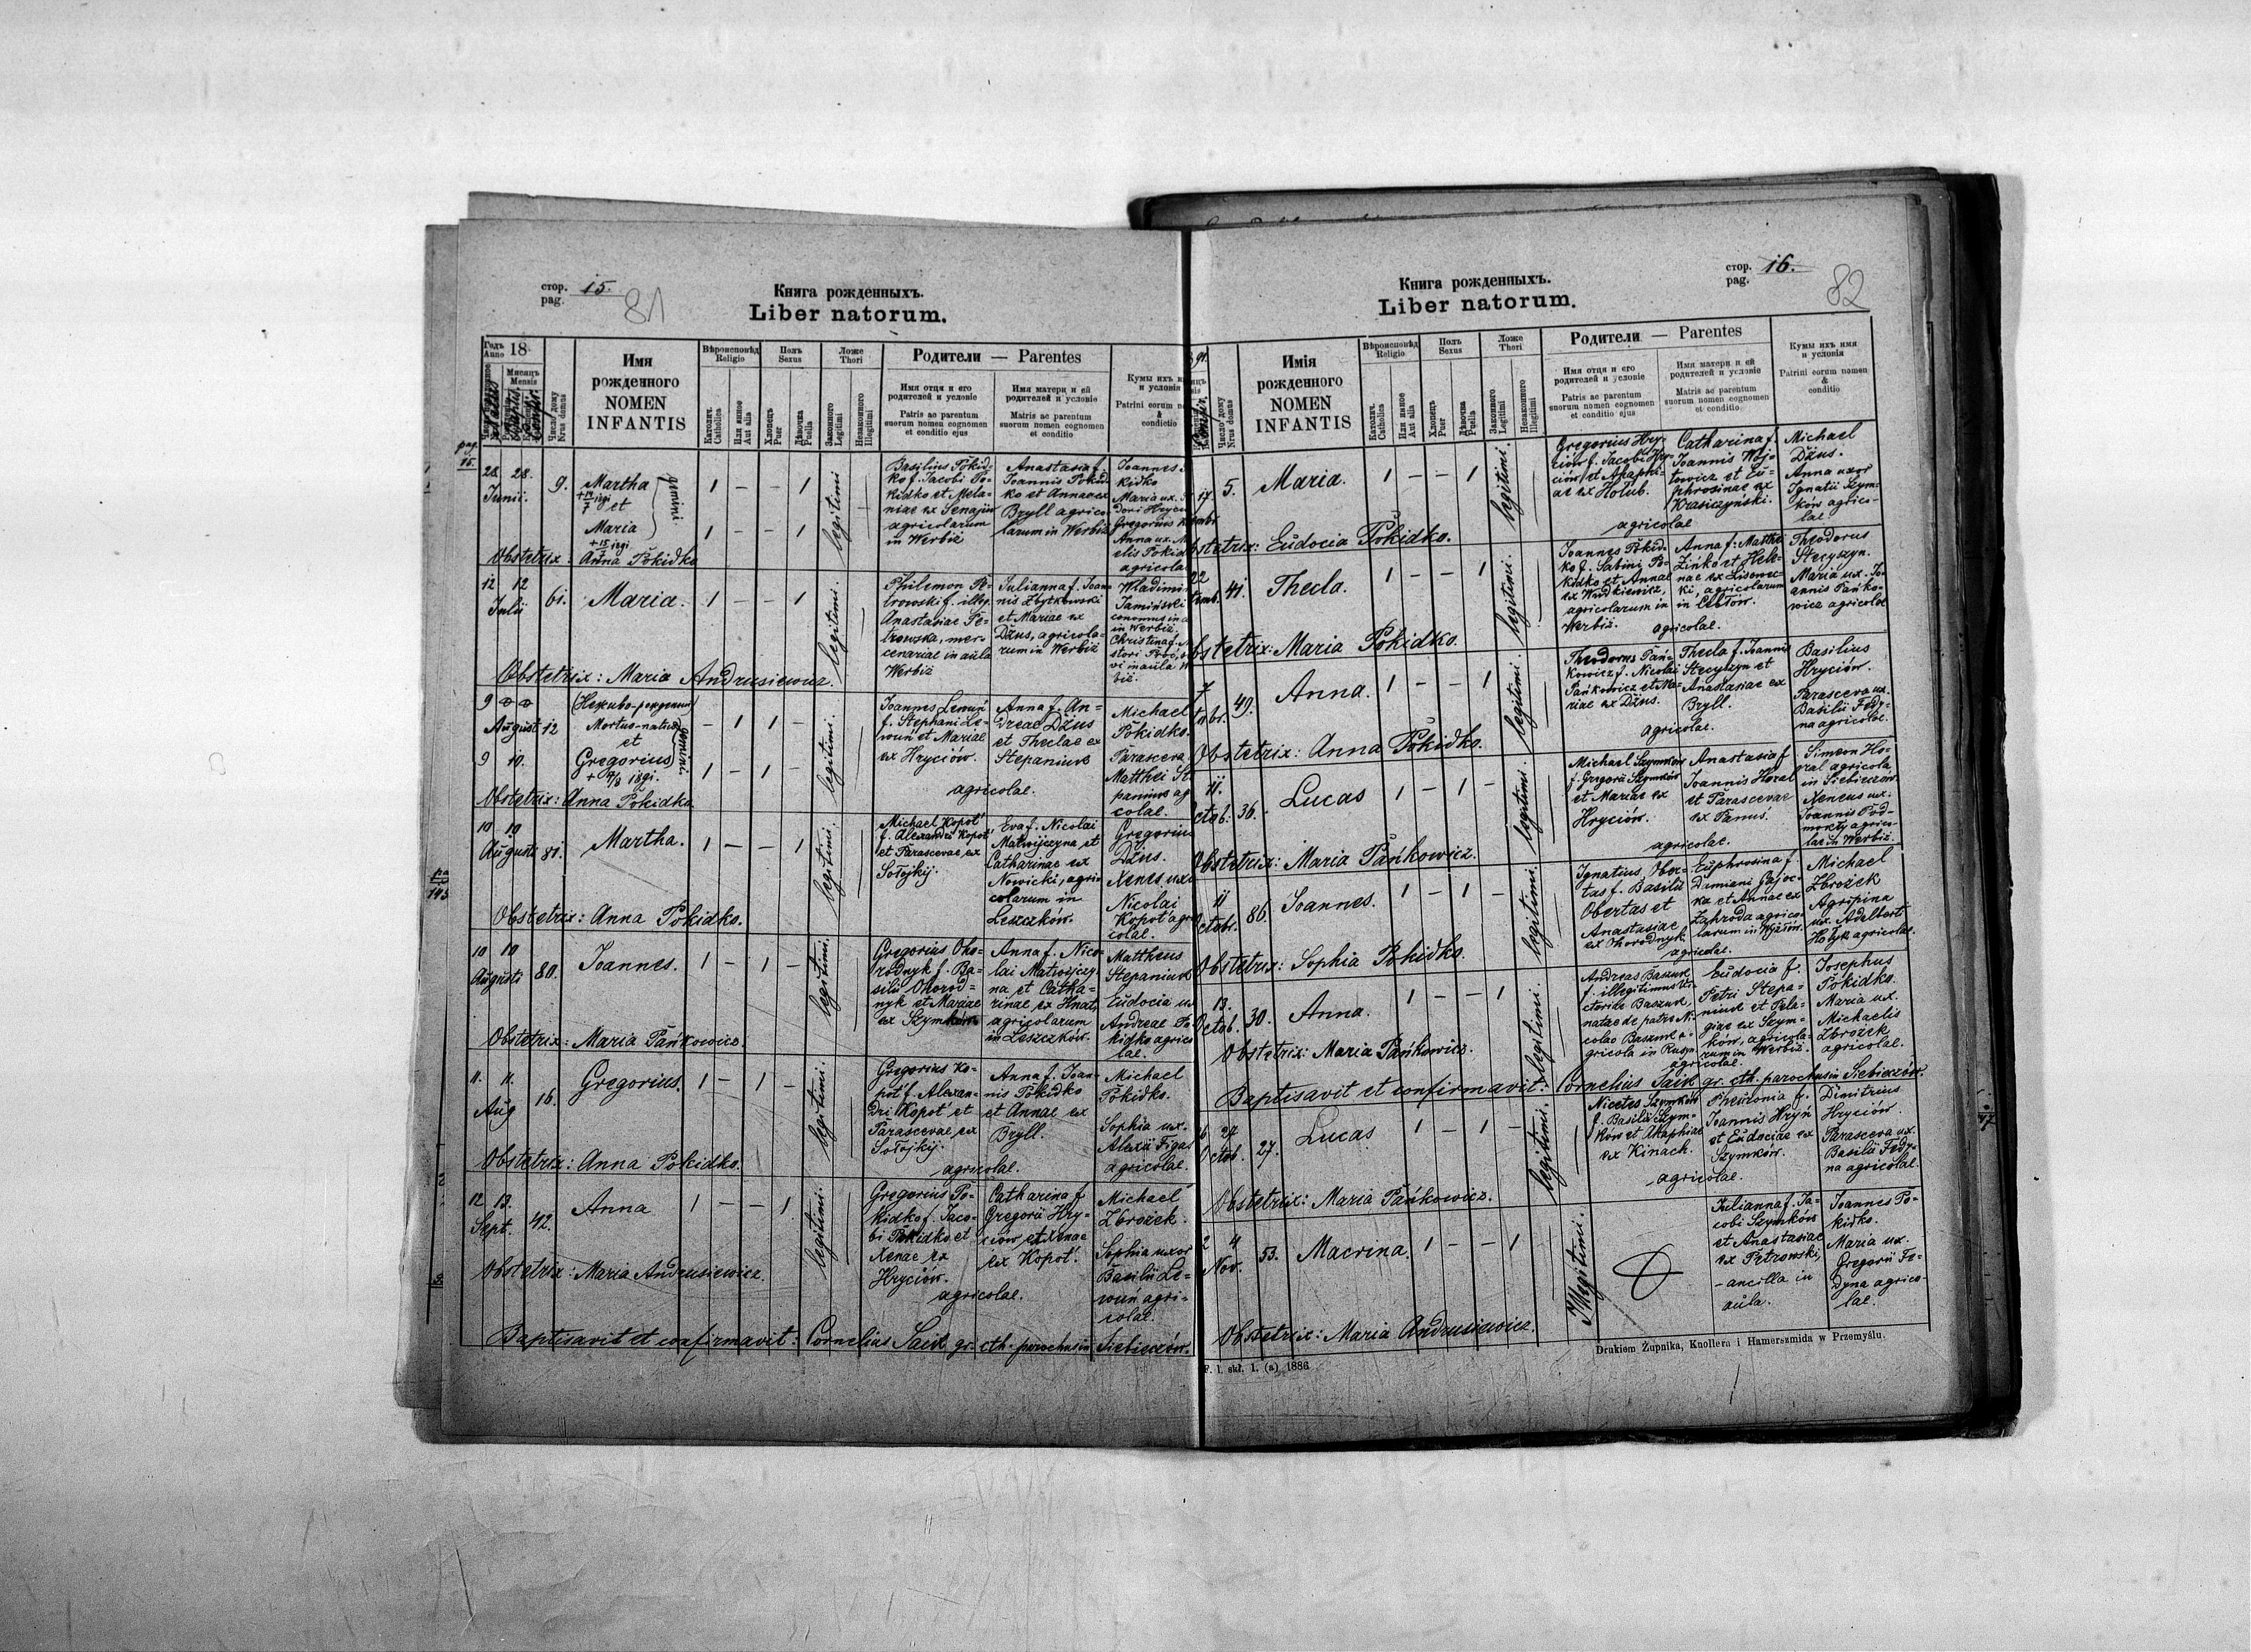 стор. 15.
pag.
81
Книга рожденныхъ.
Liber natorum.
Годъ
Anno 18
Мѣсяць
Mensis
Число дому
Nrus domus
Имя
рожденного
NOMEN
INFANTIS
Вѣроисповѣд
Religio
Католич.
Catholica
Или иное
Aut alia
Полъ
Sexus
Хлопець
Puer
Дѣвочка
Puella
Ложе
Thori
Законного
Legitimi
Незаконного
Illegitimi
Родители — Parentes
Имя отця и его
родителей и условіе
Patris ac parentum
suorum nomen cognomen
et conditio ejus
Имя матери и ей
родителей и условіе
Matris ac parentum
suorum nomen cognomen
et conditio
Кумы ихъ
и условія
Patrini eorum
&
condictio
pag.
15.
28. 28.
Junii.
9.
Martha
et
Maria
gemini
1 — — 1
1 — — 1
legitimi
Basilius Pokid-
ko f. Jacobi Po-
kidko et Mela-
niae ex Senajiw
agricolarum
in Werbiż
Anastasia f.
Joannis Pokid
ko et Annae ex
Bryll agrico
larum in Werbiż
Joannes
kidko
Maria ux.
dori Hryciw
Gregorius
Anna ux. M
elis Pokid
agricola
Obstetrix: Anna Pokidko
12 12
Julii
61.
Maria.
1 — — 1
legitimi.
Philemon Pe-
trowski f. illeg.
Anastasiae Pe-
trowska, mer-
cenariae in aula
Werbiż
Julianna f. Joan
nis Zbytkowski
et Mariae ex
Dżus, agricola-
rum in Werbiż
Wladimir
Jamiński
conomus in
in Werbiż.
Christina f.
Obstetrix: Maria Andrusiewicz.
9
August 12
Mortuo-natus
et
9 10.
Gregorius
gemini
— 1 1 —
1 — 1 —
legitimi.
Joannes Lewuń
f. Stephani Le-
wuń et Mariae
ex Hryciów.
Anna f. An-
dreae Dżus
et Theclae ex
Stepaniuk
agricolae.
Michael
Pokidko.
Parasceva
Matthei St
paniuk ag
colae.
Obstetrix: Anna Pokidko
10 10
Augusti 81.
Martha.
1 — — 1
legitimi.
Michael Kopot'
f. Alexandri Kopot'
et Parascevae ex
Sołojkij.
Eva f. Nicolai
Matwijczyna et
Catharinae ex
Nowicki, agri-
colarum in
Leszczków.
Gregorius
Dżus.
Xenes uxo
Nicolai
Kopot' agri
colae.
Obstetrix: Anna Pokidko.
10 10
Augusti 80.
Joannes.
1 — 1 —
legitimi.
Gregorius Oho-
rodnyk f. Ba-
silii Ohorod-
nyk et Mariae
ex Szymków
Anna f. Nico-
lai Matwijczy-
na et Catha-
rinae ex Hnat,
agricolarum
in Leszczków.
Mattheus
Stepaniuk
Eudocia ux
Andreae Po
kidko agrico
lae.
Obstetrix: Maria Pańkowicz.
11. 11.
Aug
16.
Gregorius.
1 — 1 —
legitimi.
Gregorius Ko-
pot' f. Alexan-
dri Kopot' et
Parascevae ex
Sołojkij.
Anna f. Joan-
nis Pokidko
et Annae ex
Bryll.
agricolae.
Michael
Pokidko.
Sophia ux.
Alexii Figa
agricolae.
Obstetrix: Anna Pokidko.
12 13.
Sept. 42.
Anna
1 — — 1
legitimi.
Gregorius Po-
kidko f. Jaco-
bi Pokidko et
Xenae ex
Hryciów.
Catharina f.
Gregorii Hry-
ciów et Xenae
ex Kopot'.
agricolae.
Michael
Zbrożek.
Sophia uxor
Basilii Le-
wuń agri-
colae.
Obstetrix: Maria Andrusiewicz.
Baptisavit et confirmavit: Cornelius Saik gr. cth. parochus in Siebieczów.
стор. 16.
pag.
82
Книга рожденныхъ.
Liber natorum.
91.
Число дому
Nrus domus
Имія
рожденного
NOMEN
INFANTIS
Вѣроисповѣд
Religio
Католич.
Catholica
Или иное
Aut alia
Полъ
Sexus
Хлопець
Puer
Дѣвочка
Puella
Ложе
Thori
Законного
Legitimi
Незаконного
Illegitimi
Родители — Parentes
Имя отця и его
родителей и условіе
Patris ac parentum
suorum nomen cognomen
et conditio ejus
Имя матери и ей
родителей и условіе
Matris ac parentum
suorum nomen cognomen
et conditio
Кумы ихъ имя
и условія
Patrini eorum nomen
&
conditio
17.
5.
Maria.
1 — — 1
legitimi.
Gregorius Hry-
ciów f. Jacobi Hry-
ciów et Ahaphi-
ae ex Hołub.
Catharina f.
Joannis Woj-
towicz et Eu-
phrosinae ex
Krasiczyński.
agricolae
Michael
Dżus.
Anna uxor
Ignatii Szym-
ków agrico-
lae.
bstetrix: Eudocia Pokidko.
22
41.
Thecla.
1 — — 1
legitimi.
Joannes Pokid-
ko f. Sabini Po-
kidko et Annae
ex Wudkiewicz,
agricolarum in
Werbiż.
Anna f. Matthei
Zińko et Hele-
nae ex Lisowec-
ki, agricolarum
in Cebłów.
agricolae.
Theodorus
Stecyszyn.
Maria ux. Jo-
annis Pańko-
wicz agricolae
bstetrix: Maria Pokidko.
7
tobr. 49.
Anna.
1 — — 1
legitimi.
Theodorus Pań-
kowicz f. Nicolai
Pańkowicz et Ma-
riae ex Dżus.
Thecla f. Joannis
Stecyszyn et
Anastasiae ex
Bryll.
agricolae.
Basilius
Hryciów.
Parasceva ux.
Basilii Fedy-
na agricolae.
Obstetrix: Anna Pokidko.
11.
ctob. 36.
Lucas
1 — 1 —
legitimi.
Michael Szymków
f. Gregorii Szymków
et Mariae ex
Hryciów.
Anastasia f.
Joannis Horal
et Parascevae
ex Panus.
agricolae.
Simeon Ho-
ral agricola
in Siebieczów.
Xeneus ux.
Joannis Pod-
mokły agrico-
lae in Werbiż.
Obstetrix: Maria Pańkowicz.
11
Octobr. 86.
Joannes.
1 — 1 —
legitimi.
Ignatius Ober-
tas f. Basilii
Obertas et
Anastasiae
ex Horodnyk
Euphrosina f.
Damiani Gajoc-
ka et Annae ex
Zahroda agrico-
larum in Wyżłów.
agricolae.
Michael
Zbrożek
Agripina
ux. Adelberti
Hołyk agricolae.
Obstetrix: Sophia Pokidko.
13.
Octob. 30.
Anna.
1 — — 1
legitimi.
Andreas Baszuk
f. illegitimus Vi-
ctoriae Baszuk,
natae de patre Ni-
colao Baszuk a-
gricola in Rusyn
Eudocia f.
Petri Stepa-
niuk et Pela-
giae ex Szym-
ków, agricola-
rum in Werbiż.
agricolae
Josephus
Pokidko.
Maria ux.
Michaelis
Zbrożek
agricolae.
Obstetrix: Maria Pańkowicz.
Baptisavit et confirmavit: Cornelius Saik gr. cth. parochus in Siebieczów.
27
Octob. 27.
Lucas
1 — 1 —
legitimi.
Nicetes Szymków
f. Basilii Szym-
ków et Ahaphiae
ex Kinach.
Pheuronia f.
Joannis Hryń
et Eudociae ex
Szymków.
agricolae.
Dimitrius
Hryciów.
Parasceva ux.
Basilii Fedy-
na agricolae.
Obstetrix: Maria Pańkowicz.
2 4
Nov. 53.
Macrina.
1 — — 1
Illegitimi.
Julianna f. Ja-
cobi Szymków
et Anastasiae
ex Petrowski,
- ancilla in
aula.
Joannes Po-
kidko.
Maria ux.
Gregorii Fe-
dyna agrico-
lae.
Obstetrix: Maria Andrusiewicz.
F. l. skł. 1. (a) 1886
Drukiem Żupnika, Knollera i Hamerszmida w Przemyślu.